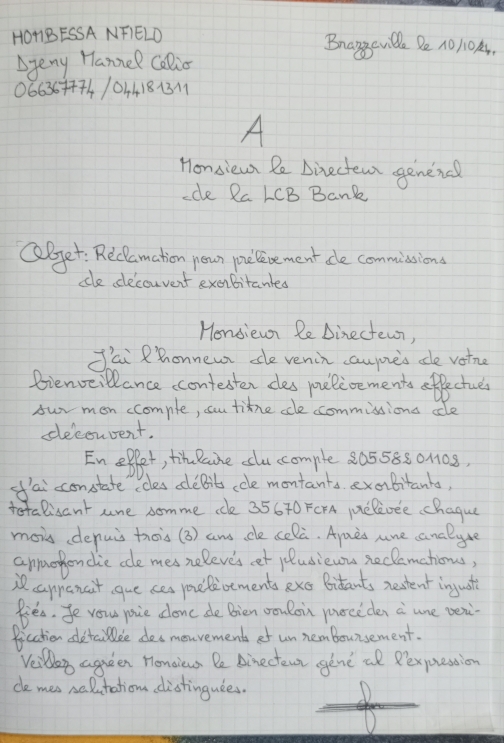 HOMBESSA NFIELO
Djeny Marrel Célio
066367774 / 044181311
Brazzaville le 10/10/24.
A
Monsieur le Directeur général
de la LCB Bank
Objet: Réclamation pour prélèvement de commissions
de découvert exorbitantes
Monsieur le Directeur,
J'ai l'honneur de venir auprès de votre
bienveillance contester des prélèvements effectués
sur mon compte, au titre de commissions de
découvert.
En effet, titulaire du compte 20558801108,
j'ai constate des débits de montants exorbitants,
totalisant une somme de 35670 FCFA prélévée chaque
mois depuis trois (3) ans de celà. Après une analyse
approfondie de mes relevés et plusieurs reclamations,
il apparait que ces prélèvements exo bitants restent injusti
fiés. Je vous prie donc de bien vouloir procéder à une veri-
fication détaillée des mouvements et un remboursement.
Veillez agréer Monsieur le Directeur géné al l'expression
de mes salutations distinguées.